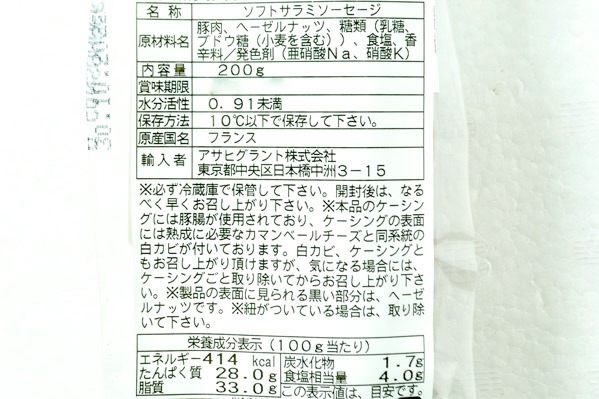 名称 ソフトサラミソーセージ
原材料名 豚肉、ヘーゼルナッツ、糖類（乳糖、
ブドウ糖（小麦を含む））、食塩、香
辛料／発色剤（亜硝酸Na、硝酸K）
内容量 200g
賞味期限
水分活性 0.91未満
保存方法 10℃以下で保存して下さい。
原産国名 フランス
輸入者 アサヒグラント株式会社
東京都中央区日本橋中洲3－15
※必ず冷蔵庫で保管して下さい。開封後は、なる
べく早くお召し上がり下さい。※本品のケーシン
グには豚腸が使用されており、ケーシングの表面
には熟成に必要なカマンベールチーズと同系統の
白カビが付いております。白カビ、ケーシングと
もお召し上がり頂けますが、気になる場合には、
ケーシングごと取り除いてからお召し上がり下さ
い。※製品の表面に見られる黒い部分は、ヘーゼ
ルナッツです。※紐がついている場合は、取り除
いて下さい。
栄養成分表示（100g当たり）
エネルギー414 kcal 炭水化物 1.7g
たんぱく質 28.0g 食塩相当量 4.0g
脂質 33.0g この表示値は、目安です。